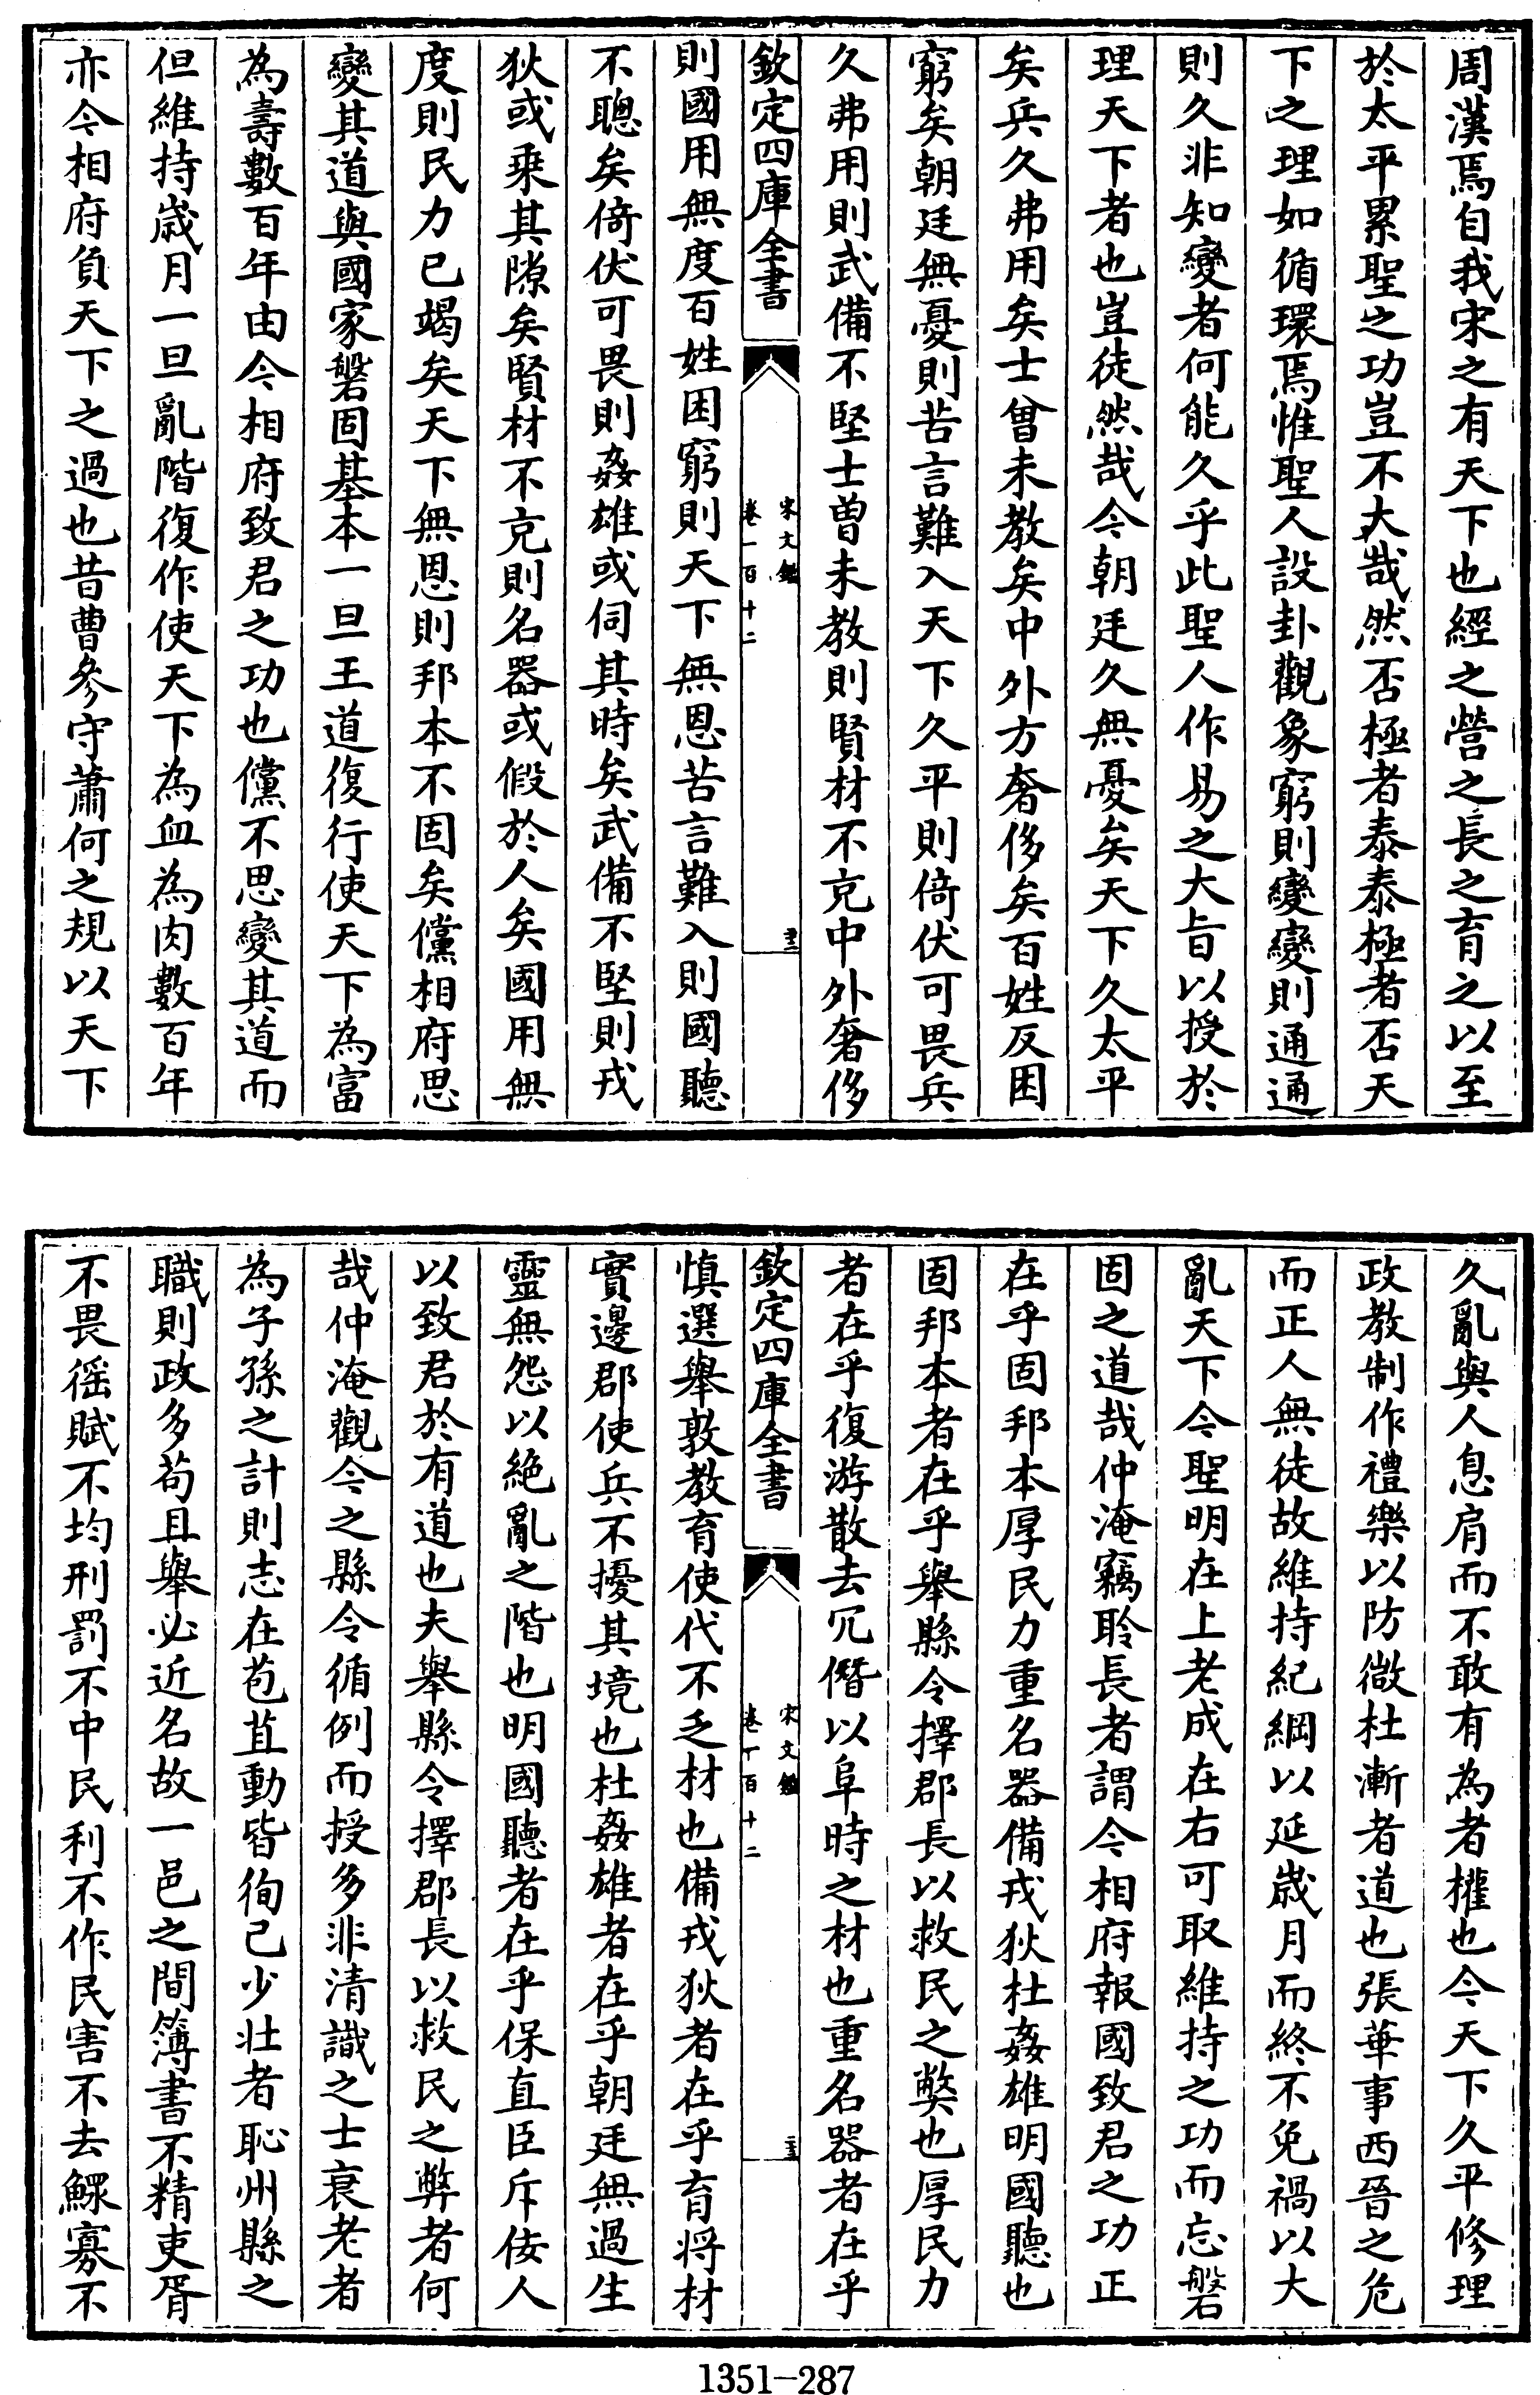 周漢焉自我宋之有天下也經之營之長之育之以至
於太平累聖之功豈不大哉然否極者泰泰極者否天
下之理如循環焉惟聖人設卦觀象窮則變變則通通
則久非知變者何能久乎此聖人作易之大旨以授於
理天下者也豈徒然哉今朝廷久無憂矣天下久太平
矣兵久弗用矣士曾未教矣中外方奢侈矣百姓反困
窮矣朝廷無憂則苦言難入天下久平則倚伏可畏兵
久弗用則武備不堅士曾未教則賢材不充中外奢侈
欽定四庫全書
宋文鑑
卷一百十二
則國用無度百姓困窮則天下無恩苦言難入則國聽
不聰矣倚伏可畏則姦雄或伺其時矣武備不堅則戎
狄或乗其隙矣賢材不充則名器或假於人矣國用無
度則民力已竭矣天下無恩則邦本不固矣儻相府思
變其道與國家磐固基本一旦王道復行使天下為富
為壽數百年由今相府致君之功也儻不思變其道而
但維持歲月一旦亂階復作使天下為血為肉數百年
亦今相府負天下之過也昔曹參守蕭何之規以天下
久亂與人息肩而不敢有為者權也今天下久平修理
政教制作禮樂以防微杜漸者道也張華事西晉之危
而正人無徒故維持紀綱以延歲月而終不免禍以大
亂天下今聖明在上老成在右可取維持之功而忘磐
固之道哉仲淹竊聆長者謂今相府報國致君之功正
在乎固邦本厚民力重名器備戎狄杜姦雄明國聽也
固邦本者在乎舉縣令擇郡長以救民之弊也厚民力
者在乎復游散去冗僭以阜時之材也重名器者在乎
欽定四庫全書
宋文鑑
卷一百十二
慎選舉敦教育使代不乏材也備戎狄者在乎育將材
實邊郡使兵不擾其境也杜姦雄者在乎朝廷無過生
靈無怨以絶亂之階也明國聽者在乎保直臣斥佞人
以致君於有道也夫舉縣令擇郡長以救民之弊者何
哉仲淹觀今之縣令循例而授多非清識之士衰老者
為子孫之計則志在苞苴動皆徇己少壯者恥州縣之
職則政多苟且舉必近名故一邑之間簿書不精吏胥
不畏徭賦不均刑罰不中民利不作民害不去鰥寡不
1351-287